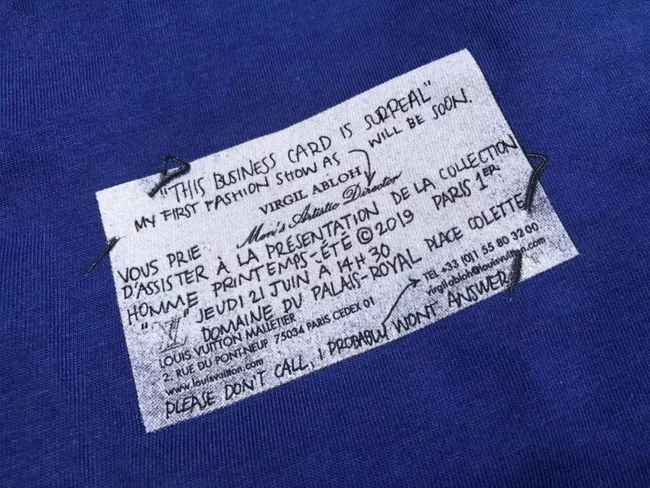 "THIS BUSINESS CARD IS SURREAL"
MY FIRST FASHION SHOW AS WILL BE SOON.
VIRGIL ABLOH
Men's Artistic Director
VOUS PRIE
D'ASSISTER À LA PRÉSENTATION DE LA COLLECTION
HOMME PRINTEMPS-ÉTÉ © 2019 PARIS 1ER
"JEUDI 21 JUIN À 14H30
DOMAINE DU PALAIS-ROYAL PLACE COLETTE
LV
LOUIS VUITTON MALLETIER
2, RUE DU PONT-NEUF 75034 PARIS CEDEX 01
www.louisvuitton.com
TEL +33 (0)1 55 80 32 00
virgilabloh@louisvuitton.com
PLEASE DON'T CALL, I PROBABLY WONT ANSWER